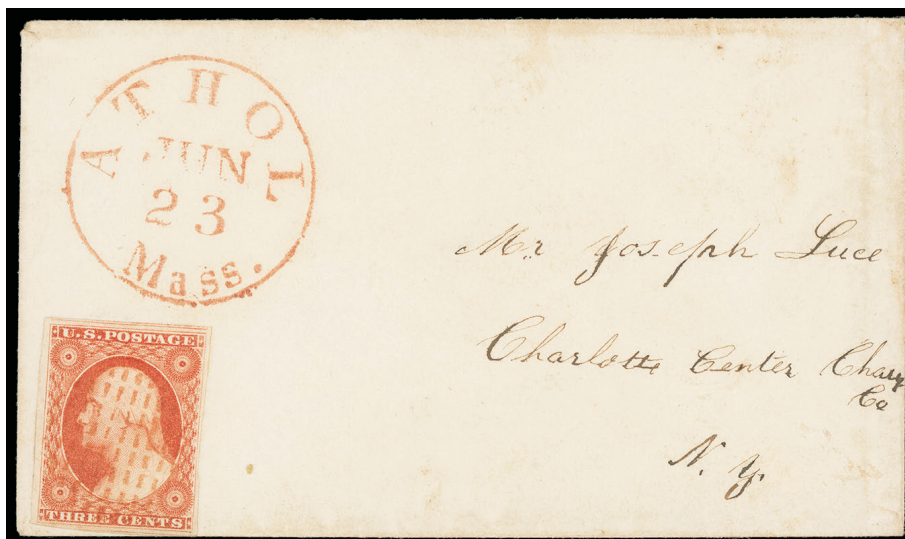 ATHOL
JUN
23
Mass.
U.S. POSTAGE
THREE CENTS
Mr. Joseph Luce
Charlotte Center Chau
Co
N. Y.